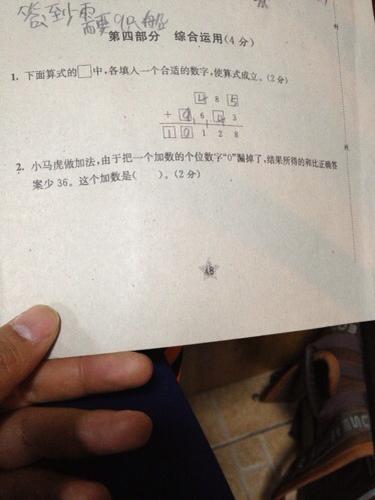 答到
需要9只船
第四部分 综合运用(4分)
1. 下面算式的□中,各填入一个合适的数字,使算式成立。(2分)
4 8 5
+ 9 6 4 3
1 0 1 2 8
2. 小马虎做加法,由于把一个加数的个位数字“0”漏掉了,结果所得的和比正确答
案少36。这个加数是( )。(2分)
48